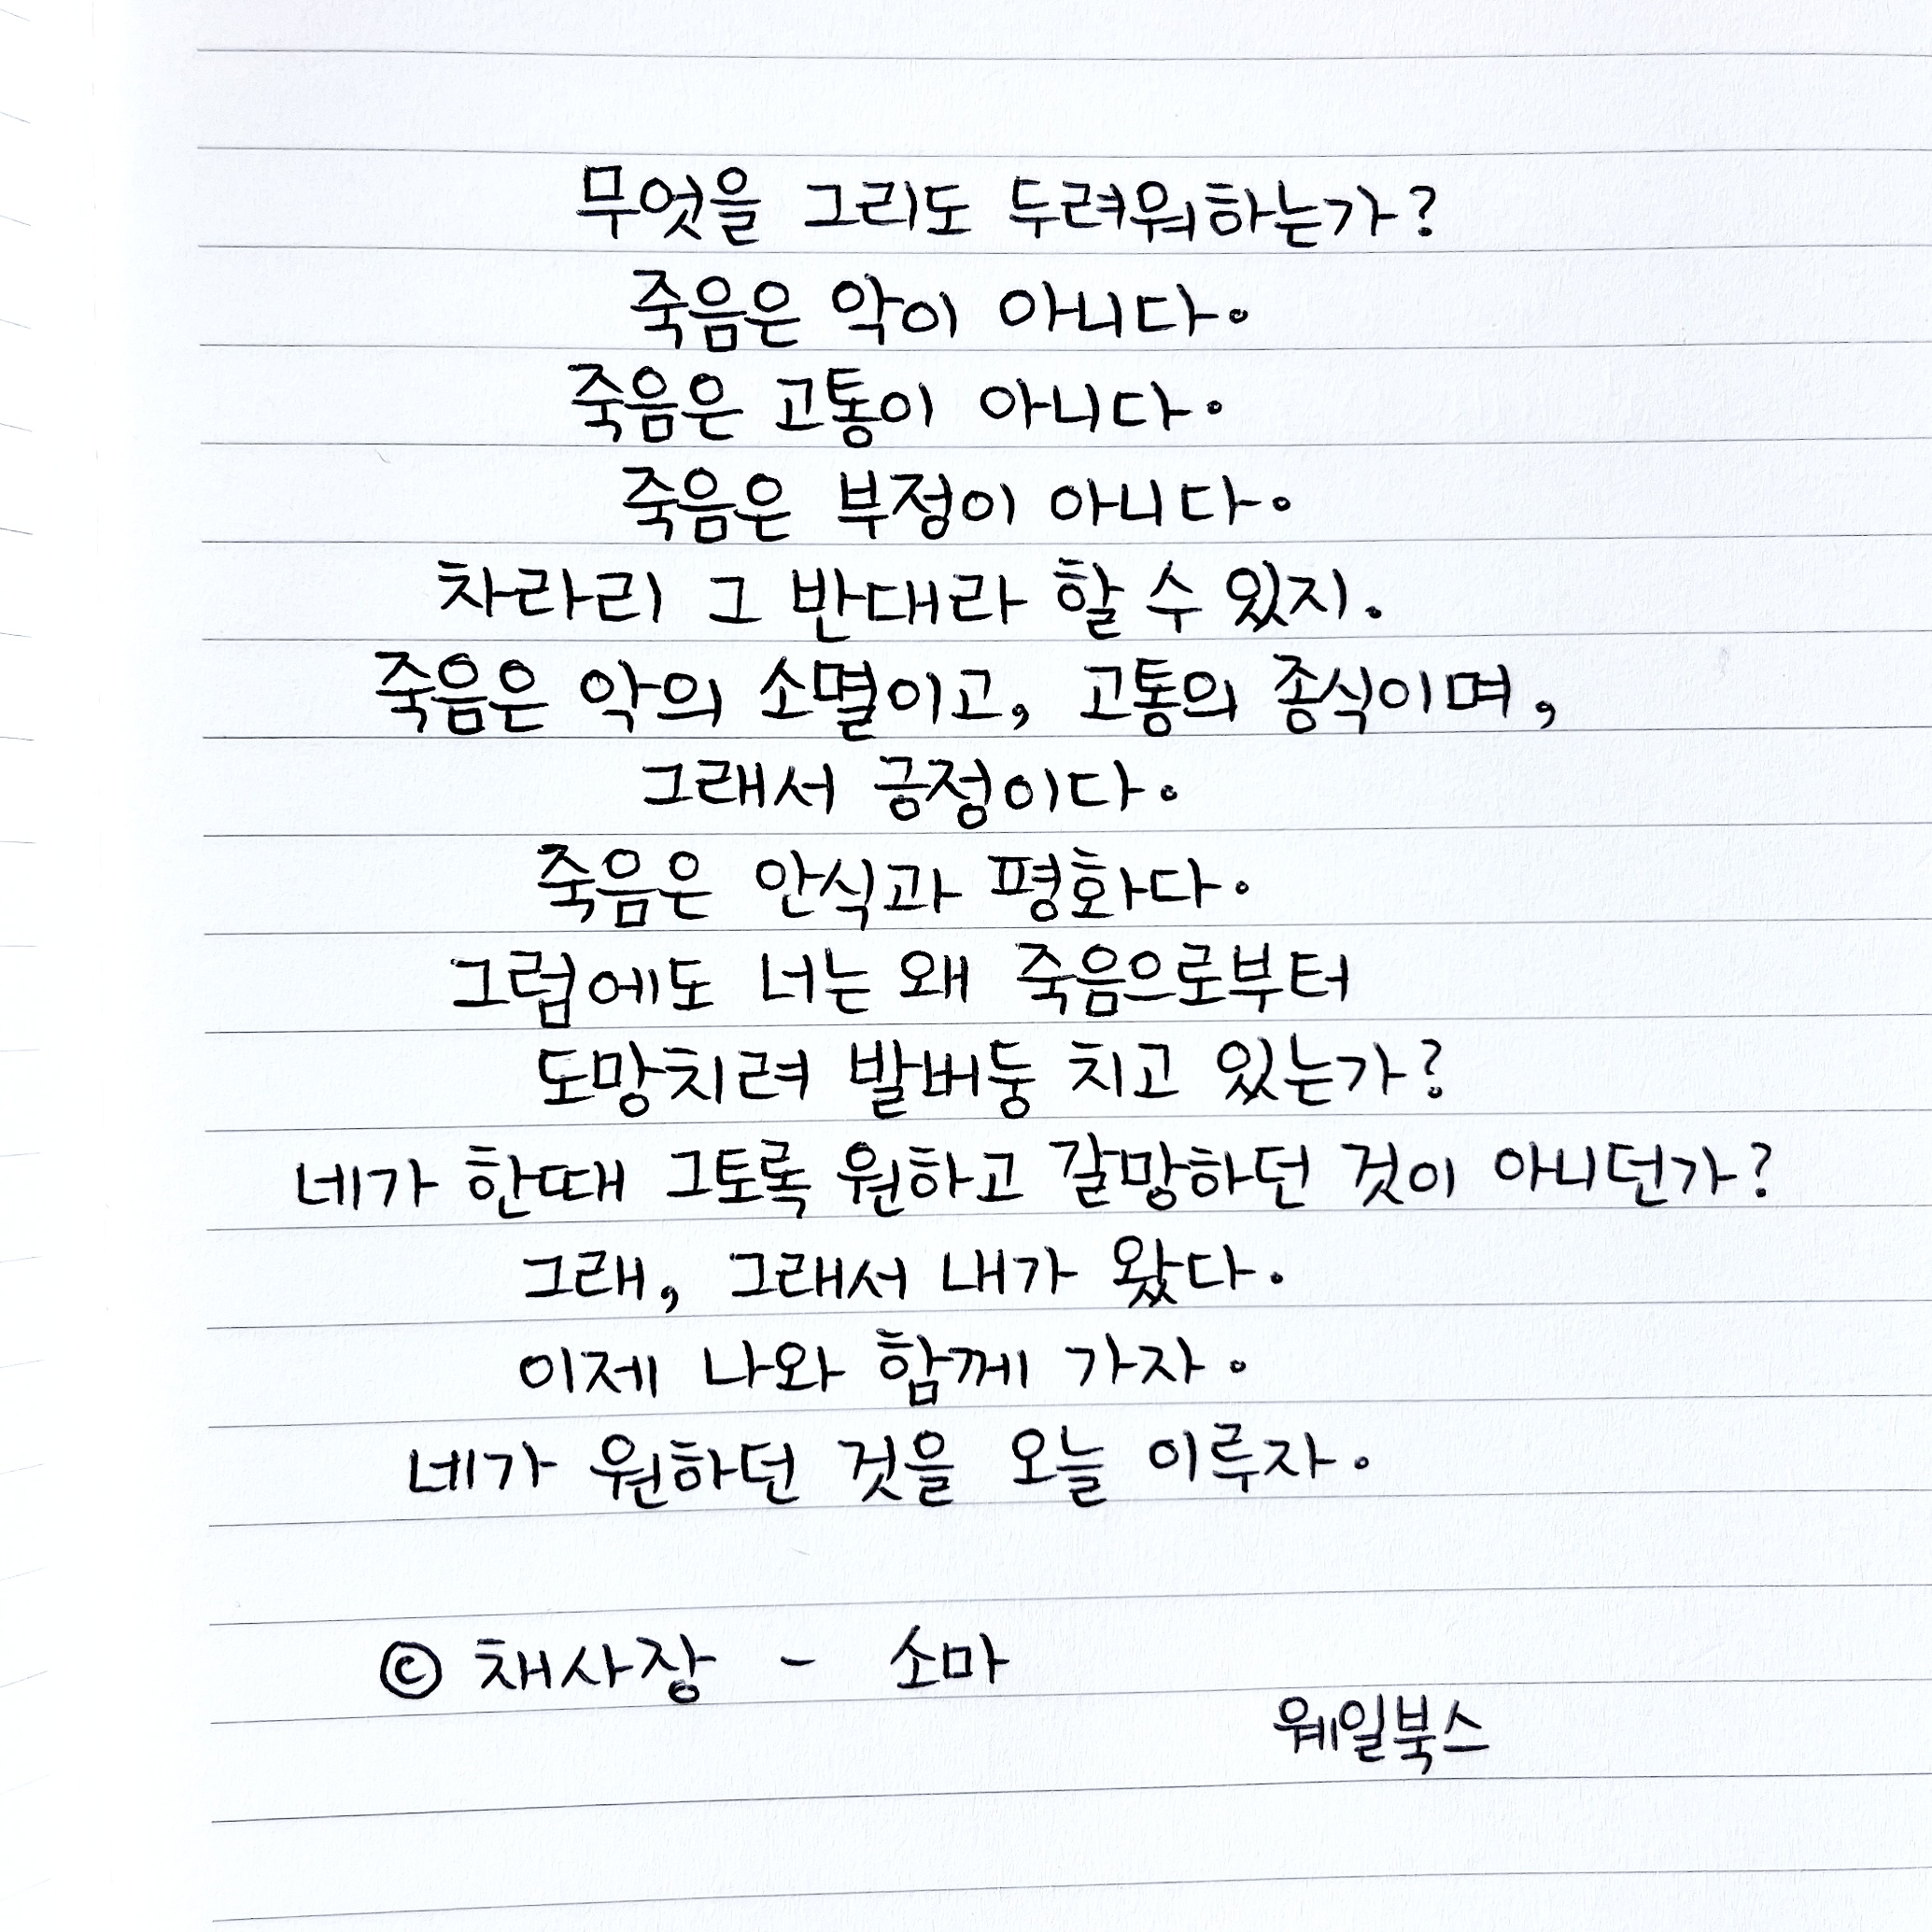 무엇을 그리도 두려워하는가?
죽음은 악이 아니다.
죽음은 고통이 아니다.
죽음은 부정이 아니다.
차라리 그 반대라 할 수 있지.
죽음은 악의 소멸이고, 고통의 종식이며,
그래서 긍정이다.
죽음은 안식과 평화다.
그럼에도 너는 왜 죽음으로부터
도망치려 발버둥 치고 있는가?
네가 한때 그토록 원하고 갈망하던 것이 아니던가?
그래, 그래서 내가 왔다.
이제 나와 함께 가자.
네가 원하던 것을 오늘 이루자.
© 채사장 - 소마
웨일북스